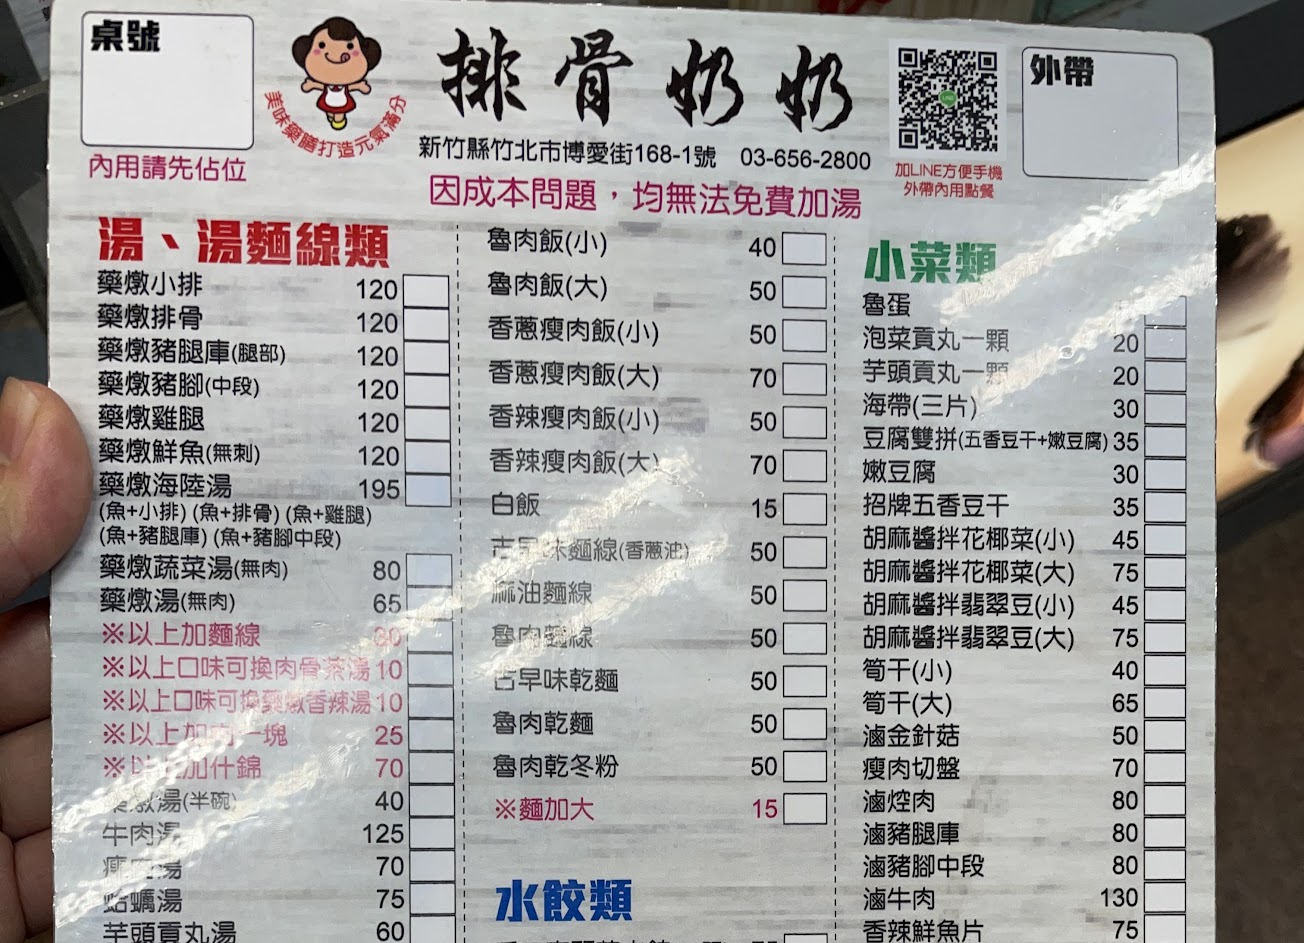 桌號
內用請先佔位
美味藥膳打造元氣滿分
排骨奶奶
新竹縣竹北市博愛街168-1號 03-656-2800
因成本問題，均無法免費加湯
LINE
加LINE方便手機
外帶內用點餐
外帶
湯、湯麵線類
藥燉小排 120
藥燉排骨 120
藥燉豬腿庫(腿部) 120
藥燉豬腳(中段) 120
藥燉雞腿 120
藥燉鮮魚(無刺) 120
藥燉海陸湯 195
(魚+小排) (魚+排骨) (魚+雞腿)
(魚+豬腿庫) (魚+豬腳中段)
藥燉蔬菜湯(無肉) 80
藥燉湯(無肉) 65
※以上加麵線
※以上口味可換肉骨茶湯 10
※以上口味可換藥燉香辣湯 10
※以上加肉一塊 25
※以上加什錦 70
藥燉湯(半碗) 40
牛肉湯 125
肉湯 70
蛤蠣湯 75
芋頭貢丸湯 60
魯肉飯(小) 40
魯肉飯(大) 50
香蔥瘦肉飯(小) 50
香蔥瘦肉飯(大) 70
香辣瘦肉飯(小) 50
香辣瘦肉飯(大) 70
白飯 15
古早味麵線(香蔥油) 50
麻油麵線 50
魯肉麵線 50
古早味乾麵 50
魯肉乾麵 50
魯肉乾冬粉 50
※麵加大 15
水餃類
小菜類
魯蛋
泡菜貢丸一顆 20
芋頭貢丸一顆 20
海帶(三片) 30
豆腐雙拼(五香豆干+嫩豆腐) 35
嫩豆腐 30
招牌五香豆干 35
胡麻醬拌花椰菜(小) 45
胡麻醬拌花椰菜(大) 75
胡麻醬拌翡翠豆(小) 45
胡麻醬拌翡翠豆(大) 75
筍干(小) 40
筍干(大) 65
滷金針菇 50
瘦肉切盤 70
滷焢肉 80
滷豬腿庫 80
滷豬腳中段 80
滷牛肉 130
香辣鮮魚片 75